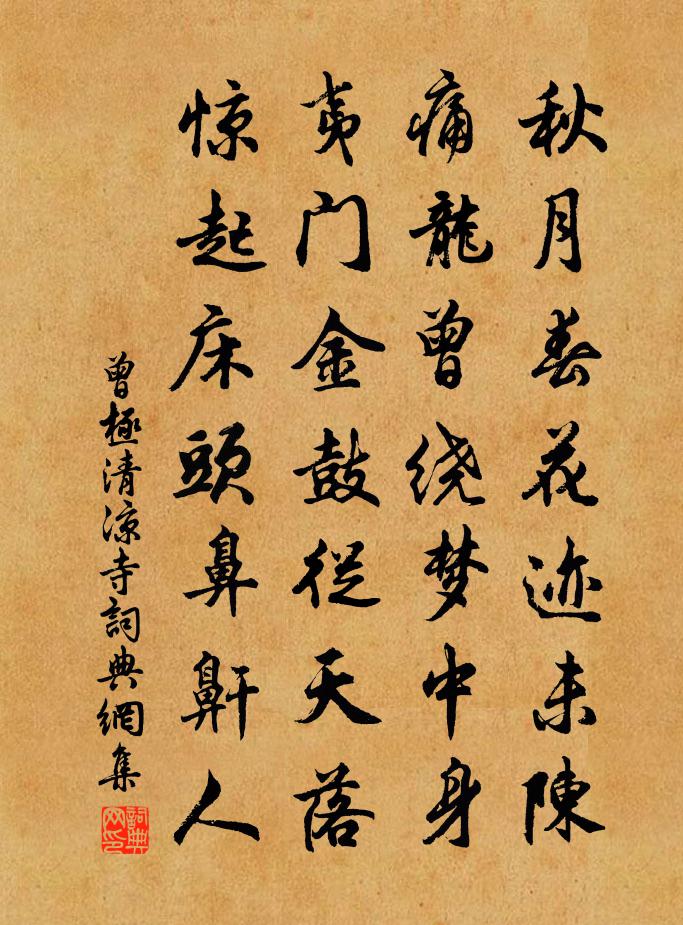 秋月春花迹未陳
痛龍曾绕梦中身
夷门金鼓从天落
惊起床頭鼻鼾人
曾極清凉寺詞典網集
詞典网印